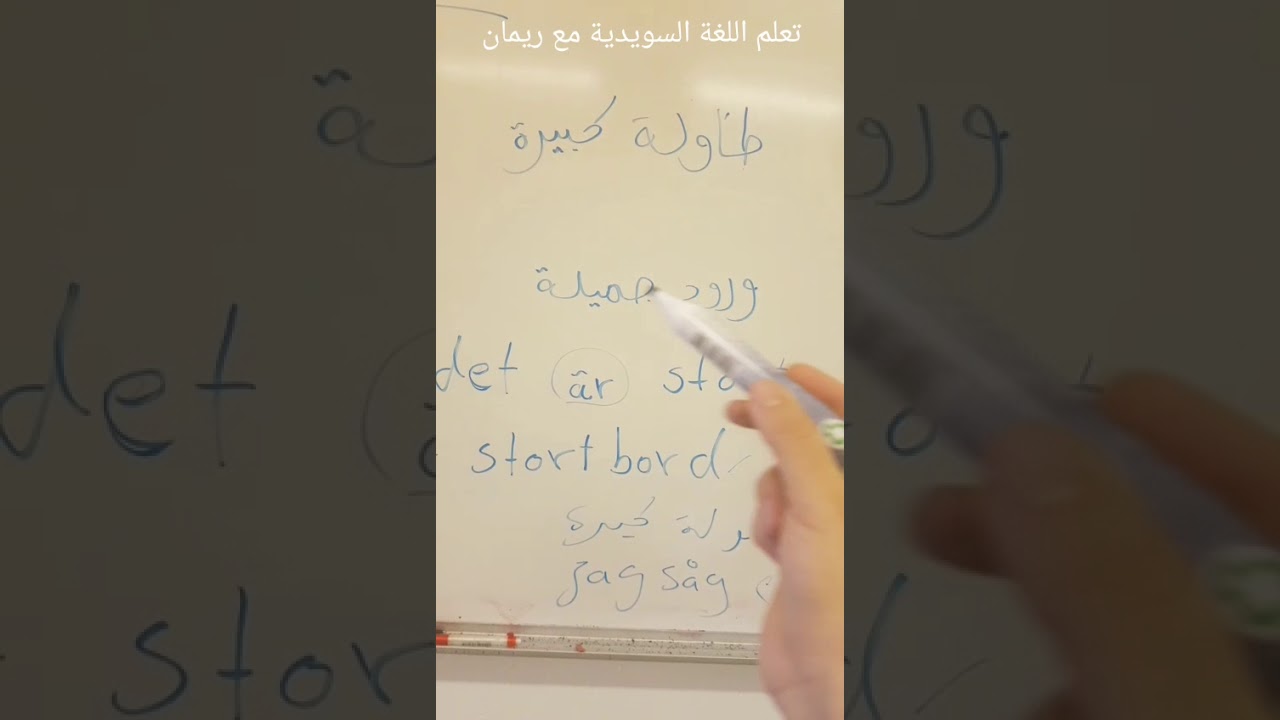 تعلم اللغة السويدية مع ريمان
طاولة كبيرة
ورود جميلة
det är
stort bord
كبيرة
jag såg